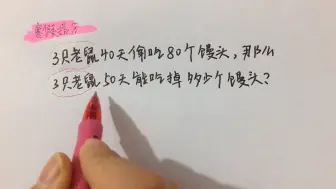 3只老鼠40天偷吃80个馒头，那么
3只老鼠50天能吃掉多少个馒头？